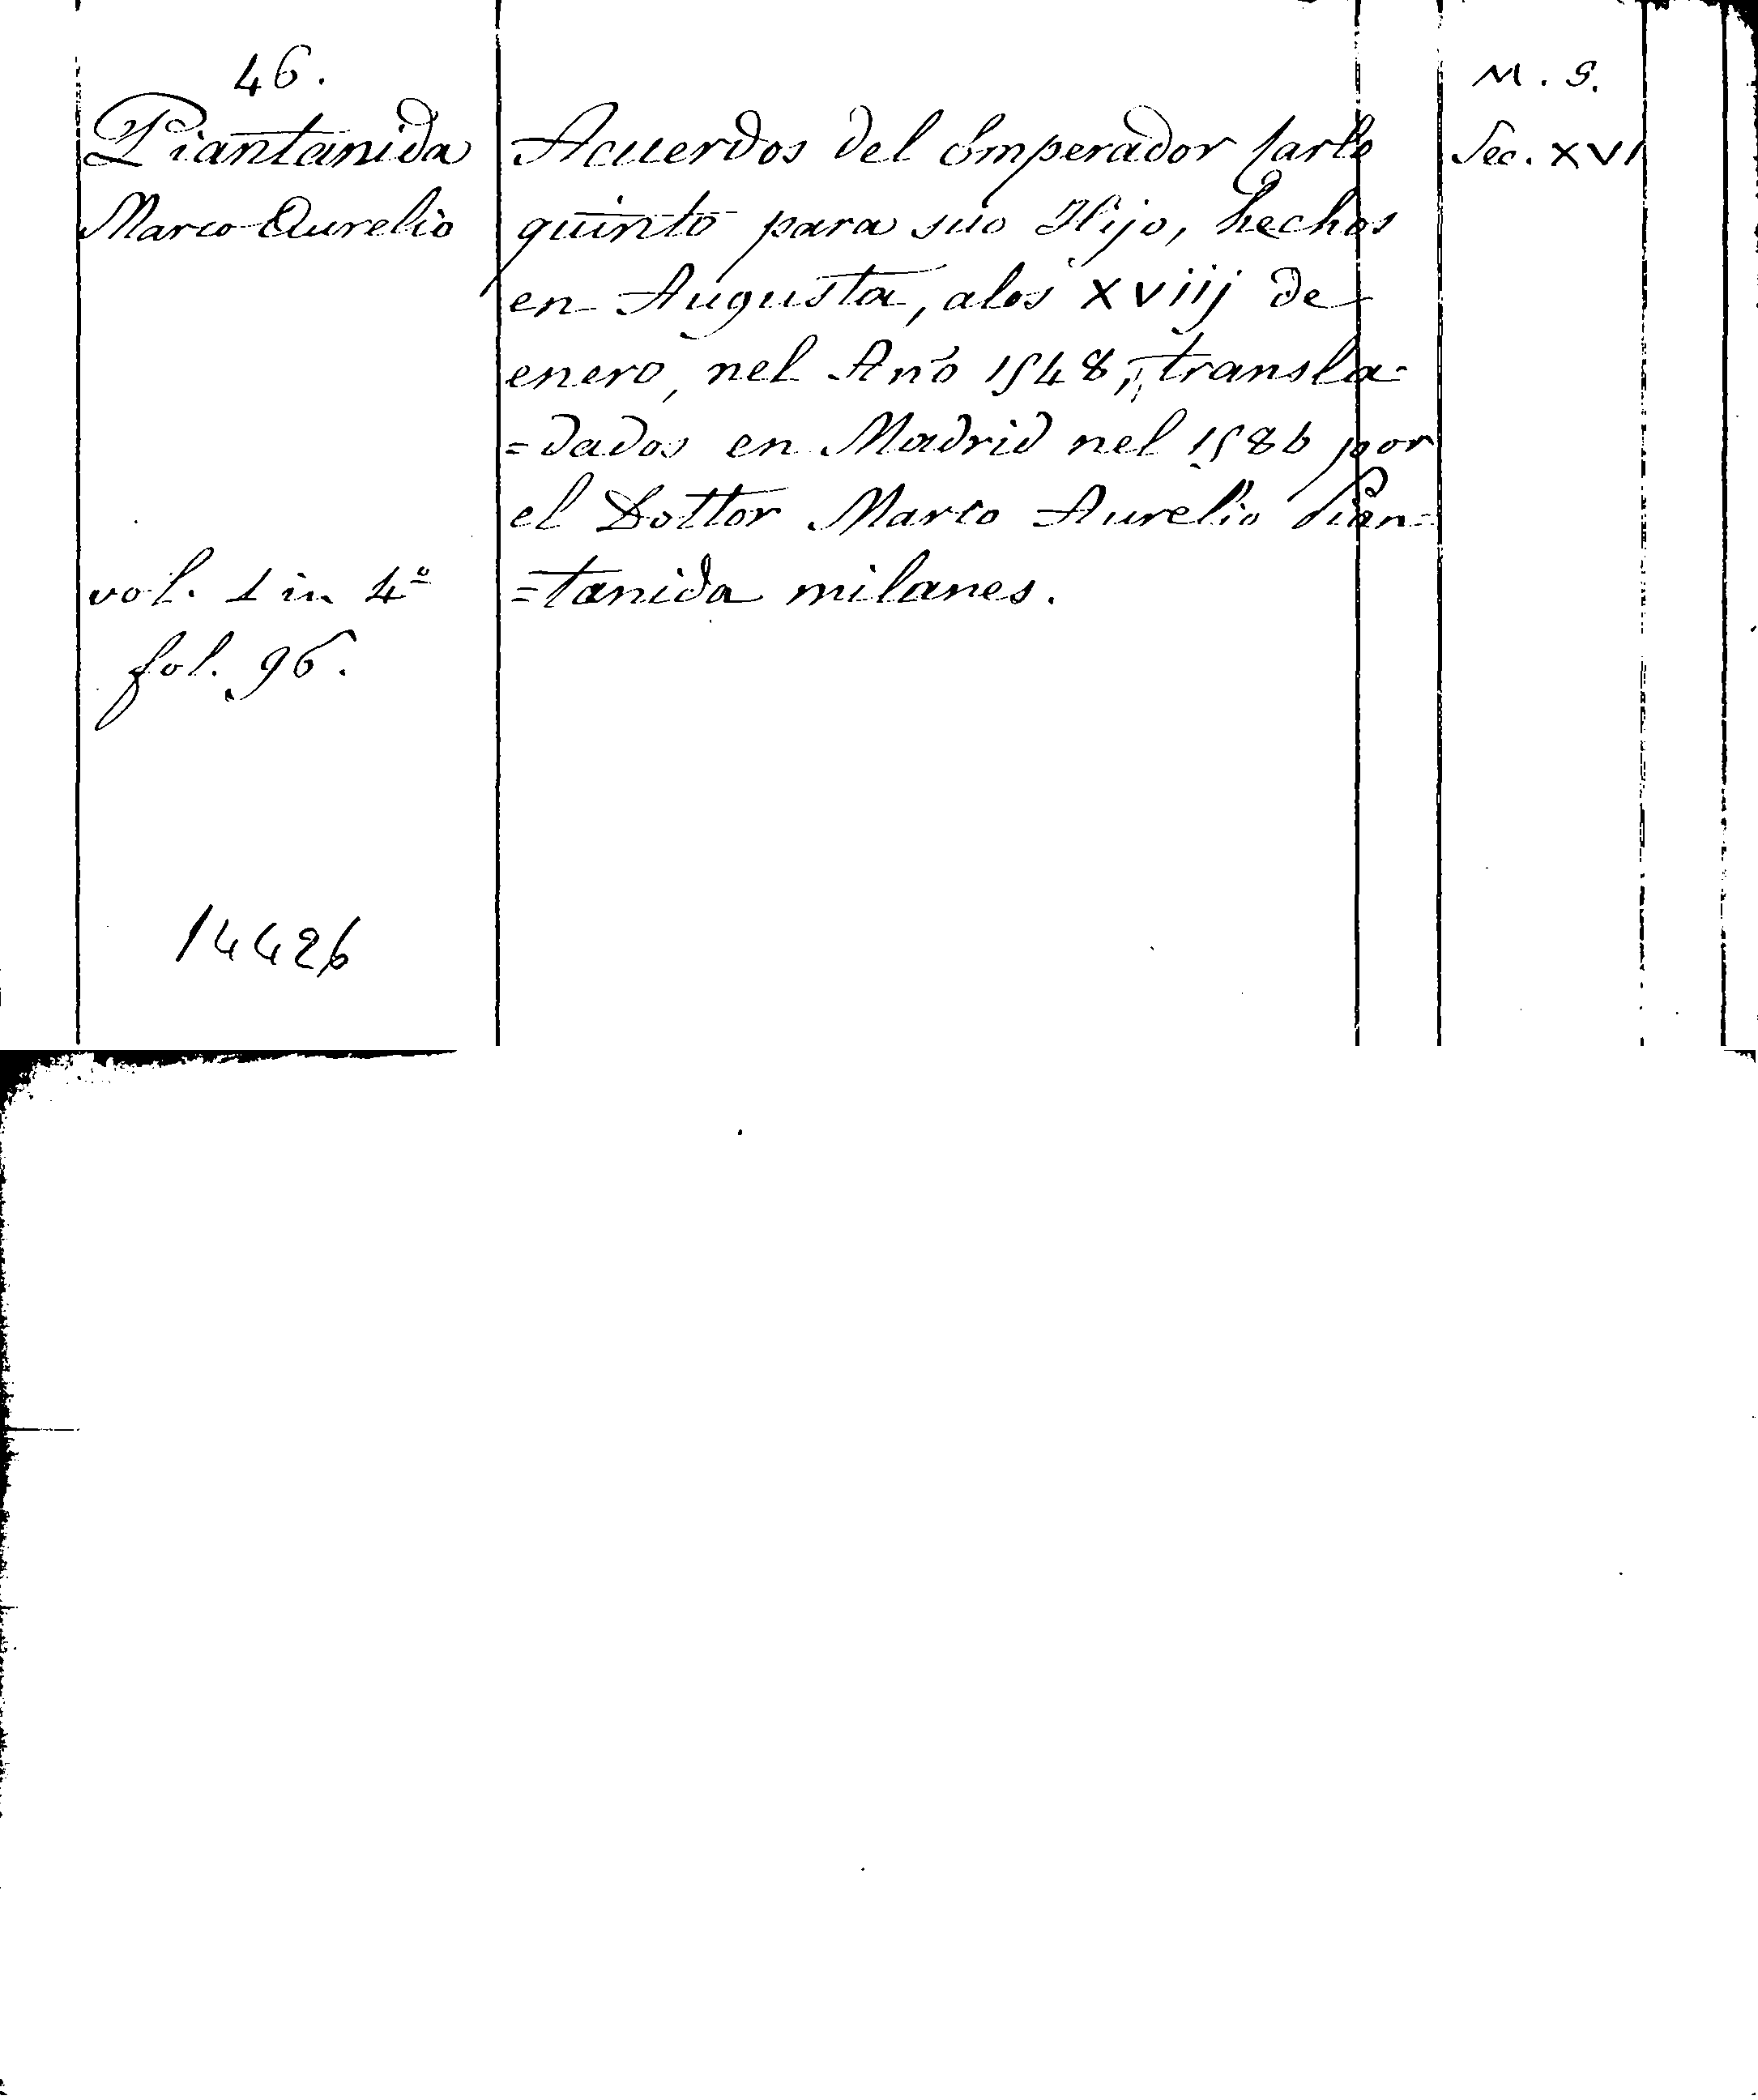 46.
Piantanida
Marco Aurelio
vol. 1 in 4º
fol. 96.
14426
Acuerdos del Imperador Carlo
quinto para suo Hijo, hechos
en Augusta, alos XViij de
enero, nel Año 1548, transla-
=dados en Madrid nel 1586 por
el Dottor Marco Aurelio Pian=
=tanida milanes.
M. S.
Sec. XVI